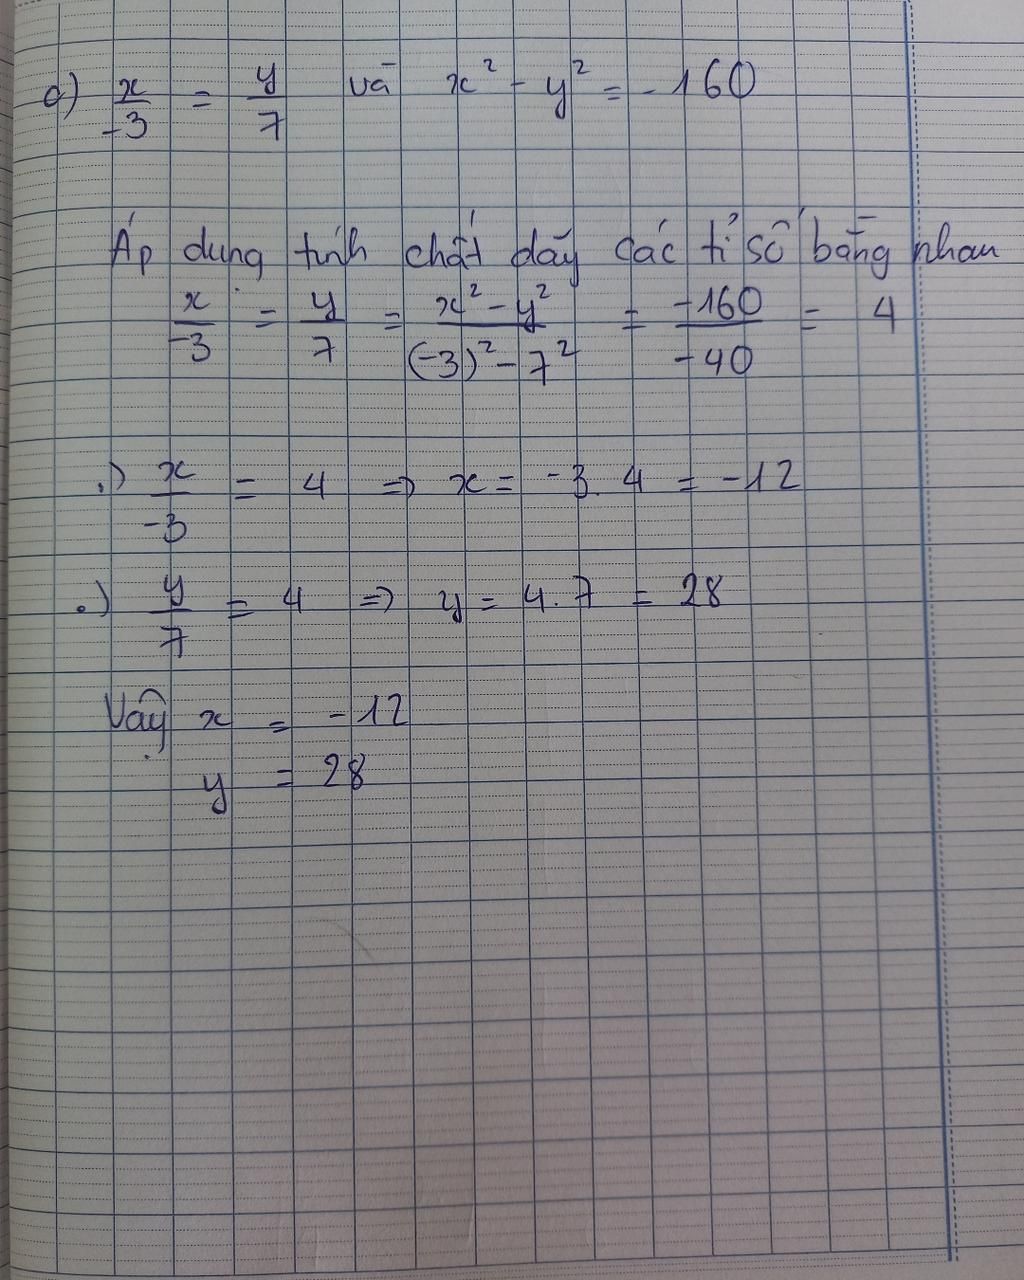 a) x/-3 = y/7 và x² - y² = -160
Áp dụng tính chất dãy các tỉ số bằng nhau
x/-3 = y/7 = x² - y²/(-3)² - 7² = -160/-40 = 4
.) x/-3 = 4 => x = -3. 4 = -12
.) y/7 = 4 => y = 4. 7 = 28
Vậy x = -12
y = 28